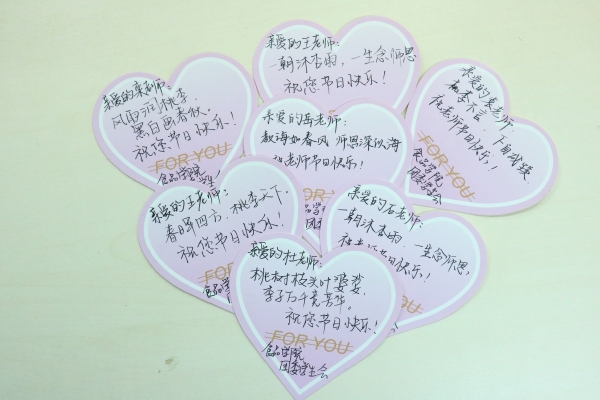 亲爱的王老师:
一朝沐杏雨,一生念师恩
祝您节日快乐!
亲爱的栾老师:
风雨润桃李,
黑白画春秋,
祝您节日快乐!
FOR YOU
亲爱的裴老师
桃李不言,下自成蹊,
祝老师节日快乐!
FOR YOU
食品学院
团委学生会
亲爱的岳老师:
教诲如春风 师恩深似海
祝老师节日快乐!
亲爱的王老师:
春晖四方,桃李天下,
祝您节日快乐!
亲爱的石老师:
一朝沐杏雨,一生念师恩,
节日快乐!
亲爱的杜老师:
桃树枝头叶婆娑,
李子万千竞芳华。
祝您节日快乐!
FOR YOU
食品学院
团委学生会